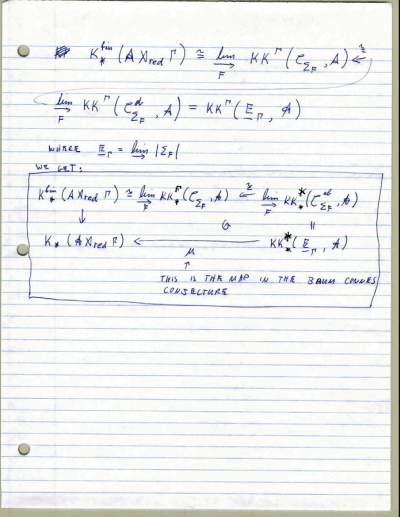 K_*^{fin}(A ⋊_red Γ) ≅ lim_{→ F} KK^Γ(C_{Σ_F}, A) ←≅
lim_{→ F} KK^Γ(C^{ab}_{Σ_F}, A) = KK^Γ(E_Γ, A)
WHERE E_Γ = lim_→ |Σ_F|
WE GET:
K_*^{fin}(A ⋊_red Γ) ≅ lim_{→ F} KK_*^Γ(C_{Σ_F}, A) ←≅ lim_{→ F} KK_*^*(C^{ab}_{Σ_F}, A)
↓ G ||
K_*(A ⋊_red Γ) ← KK_*^*(E_Γ, A)
μ
↑
THIS IS THE MAP IN THE BAUM CONNES
CONJECTURE